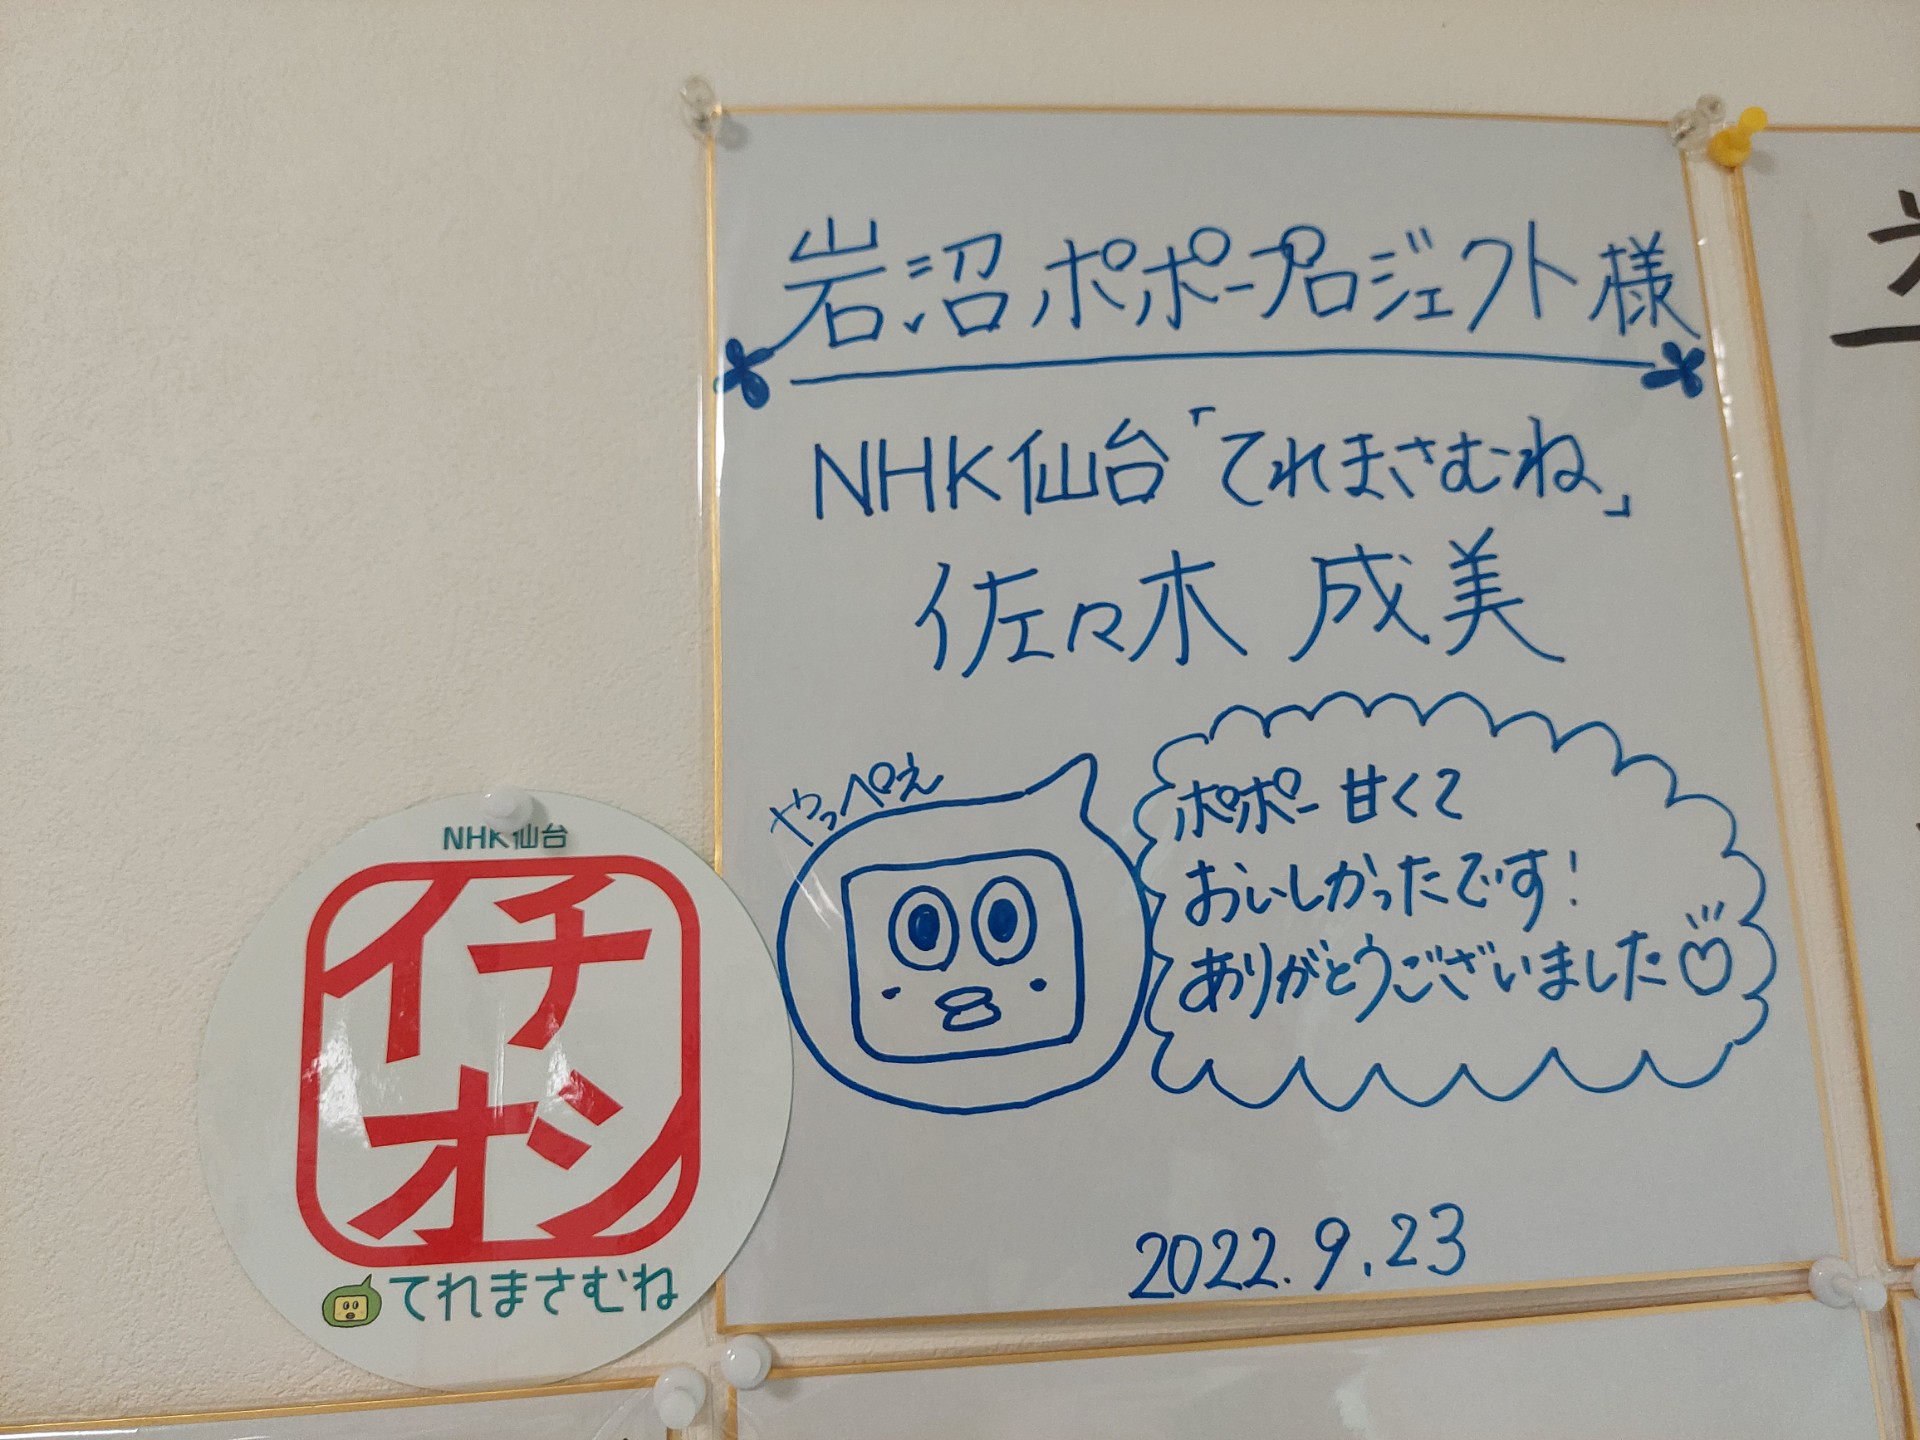 岩沼ポポープロジェクト様
NHK仙台「てれまさむね」
佐々木 成美
やっぺぇ
ポポー甘くて
おいしかったです!
ありがとうございました
2022.9.23
NHK仙台
イチ
オシ
てれまさむね